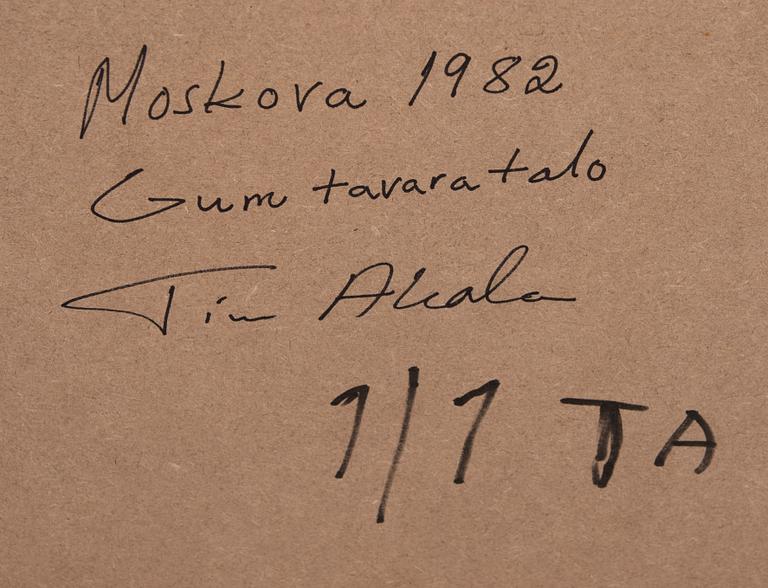 Moskova 1982
Gum tavaratalo
Tim Akala
1/1 TA